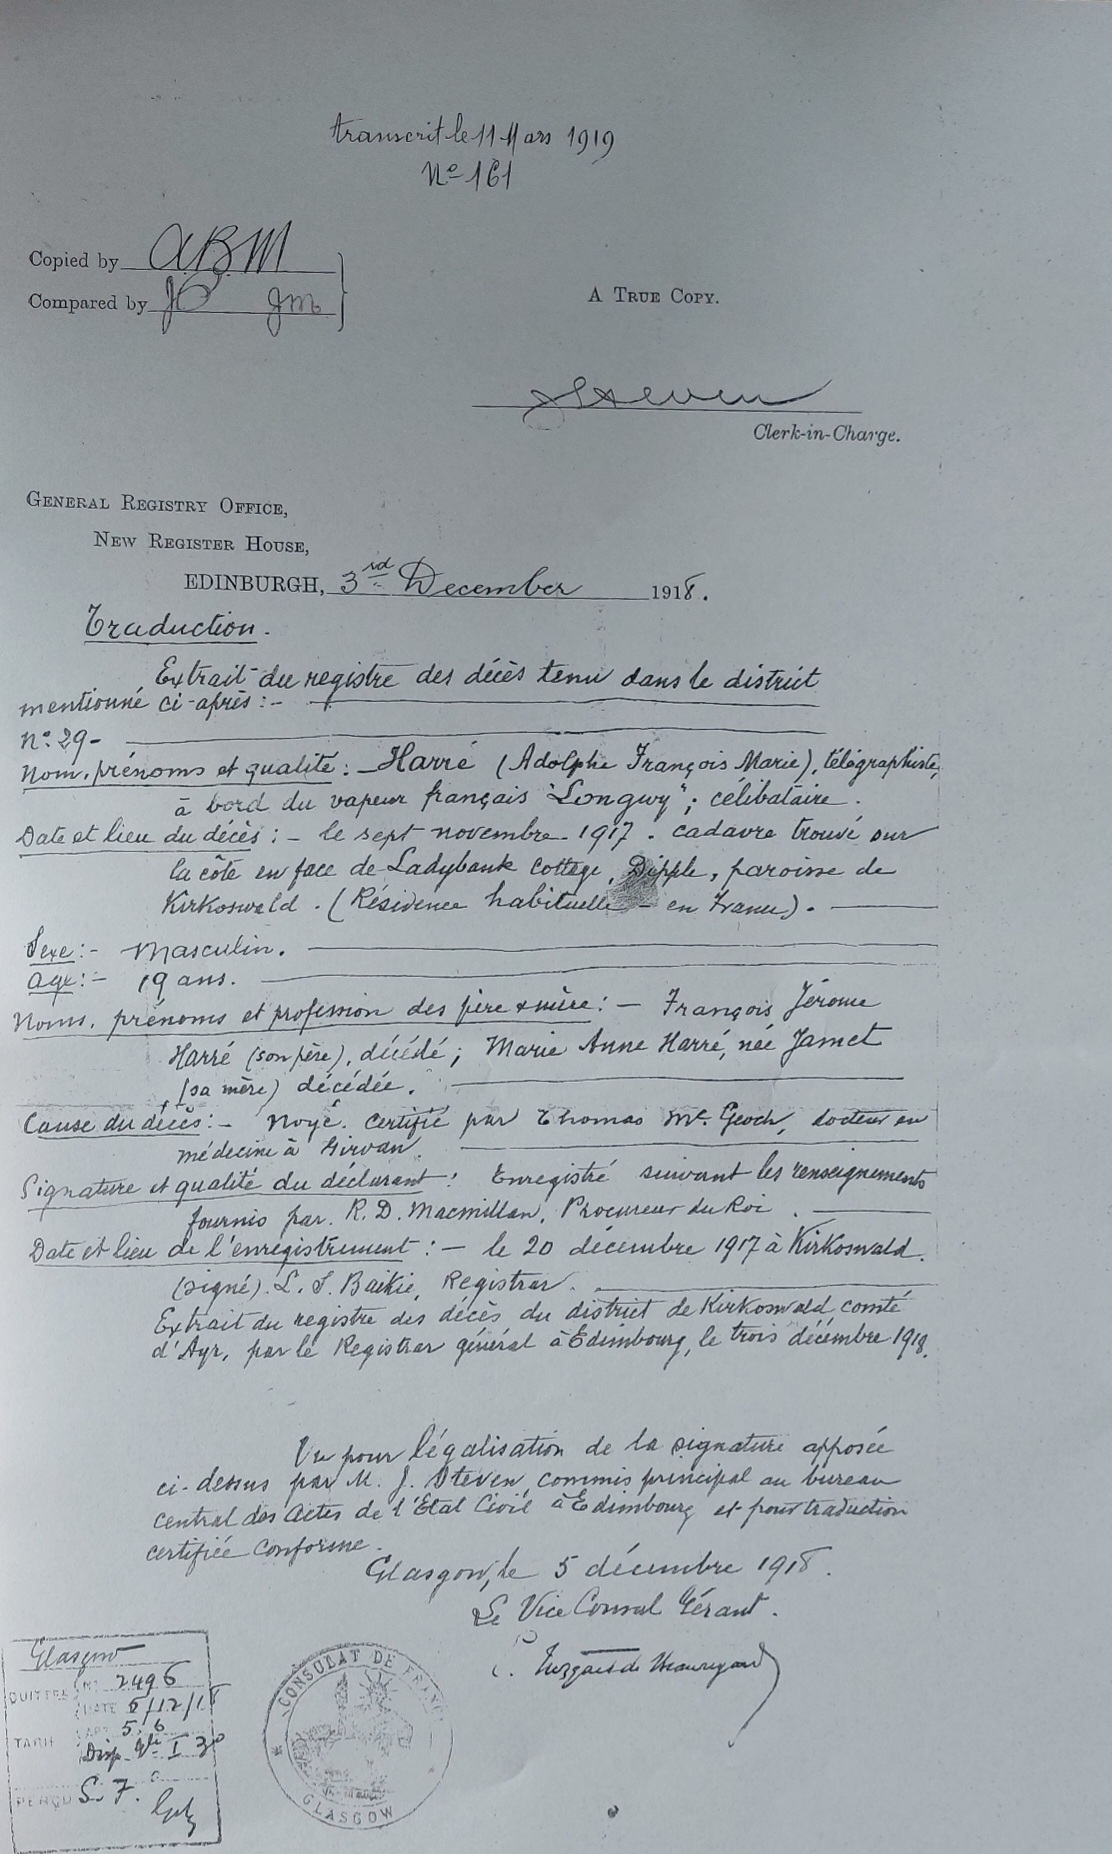 transcrit le 11 Mars 1919
No 161
Copied by A.B.M
Compared by JM
A TRUE COPY.
J Steven
Clerk-in-Charge.
GENERAL REGISTRY OFFICE,
NEW REGISTER HOUSE,
EDINBURGH, 3rd December 1918.
Traduction.
Extrait du registre des décès tenu dans le district
mentionné ci-après :-
No. 29-
Nom, prénoms et qualité : Harré (Adolphe François Marie), télégraphiste,
à bord du vapeur français "Longwy"; célibataire.
Date et lieu du décès :- le sept novembre 1917. cadavre trouvé sur
la côte en face de Ladybank Cottage, Dipple, paroisse de
Kirkoswald. (Résidence habituelle - en France). -
Sexe :- Masculin.
Age :- 19 ans.
Noms, prénoms et profession des père & mère : - François Jérome
Harré (son père), décédé; Marie Anne Harré, née Jamet
(sa mère) décédée.
Cause du décès :- Noyé. Certifié par Thomas Mc. Geoch, docteur en
médecine à Girvan.
Signature et qualité du déclarant : Enregistré suivant les renseignements
fournis par R. D. Macmillan, Procureur du Roi.
Date et lieu de l'enregistrement : - le 20 décembre 1917 à Kirkoswald.
(signé). L. S. Baikie, Registrar.
Extrait du registre des décès du district de Kirkoswald comté
d'Ayr, par le Registrar général à Edimbourg, le trois décembre 1918.
Vu pour légalisation de la signature apposée
ci-dessus par M. J. Steven, commis principal au bureau
central des Actes de l'Etat Civil à Edimbourg et pour traduction
certifiée conforme.
Glasgow, le 5 décembre 1918.
Le Vice Consul Gérant.
Glasgow
QUITTCE No 2496
DATE 5/12/18
TARIF ART 5.6
PERÇU
CONSULAT DE FRANCE
GLASGOW